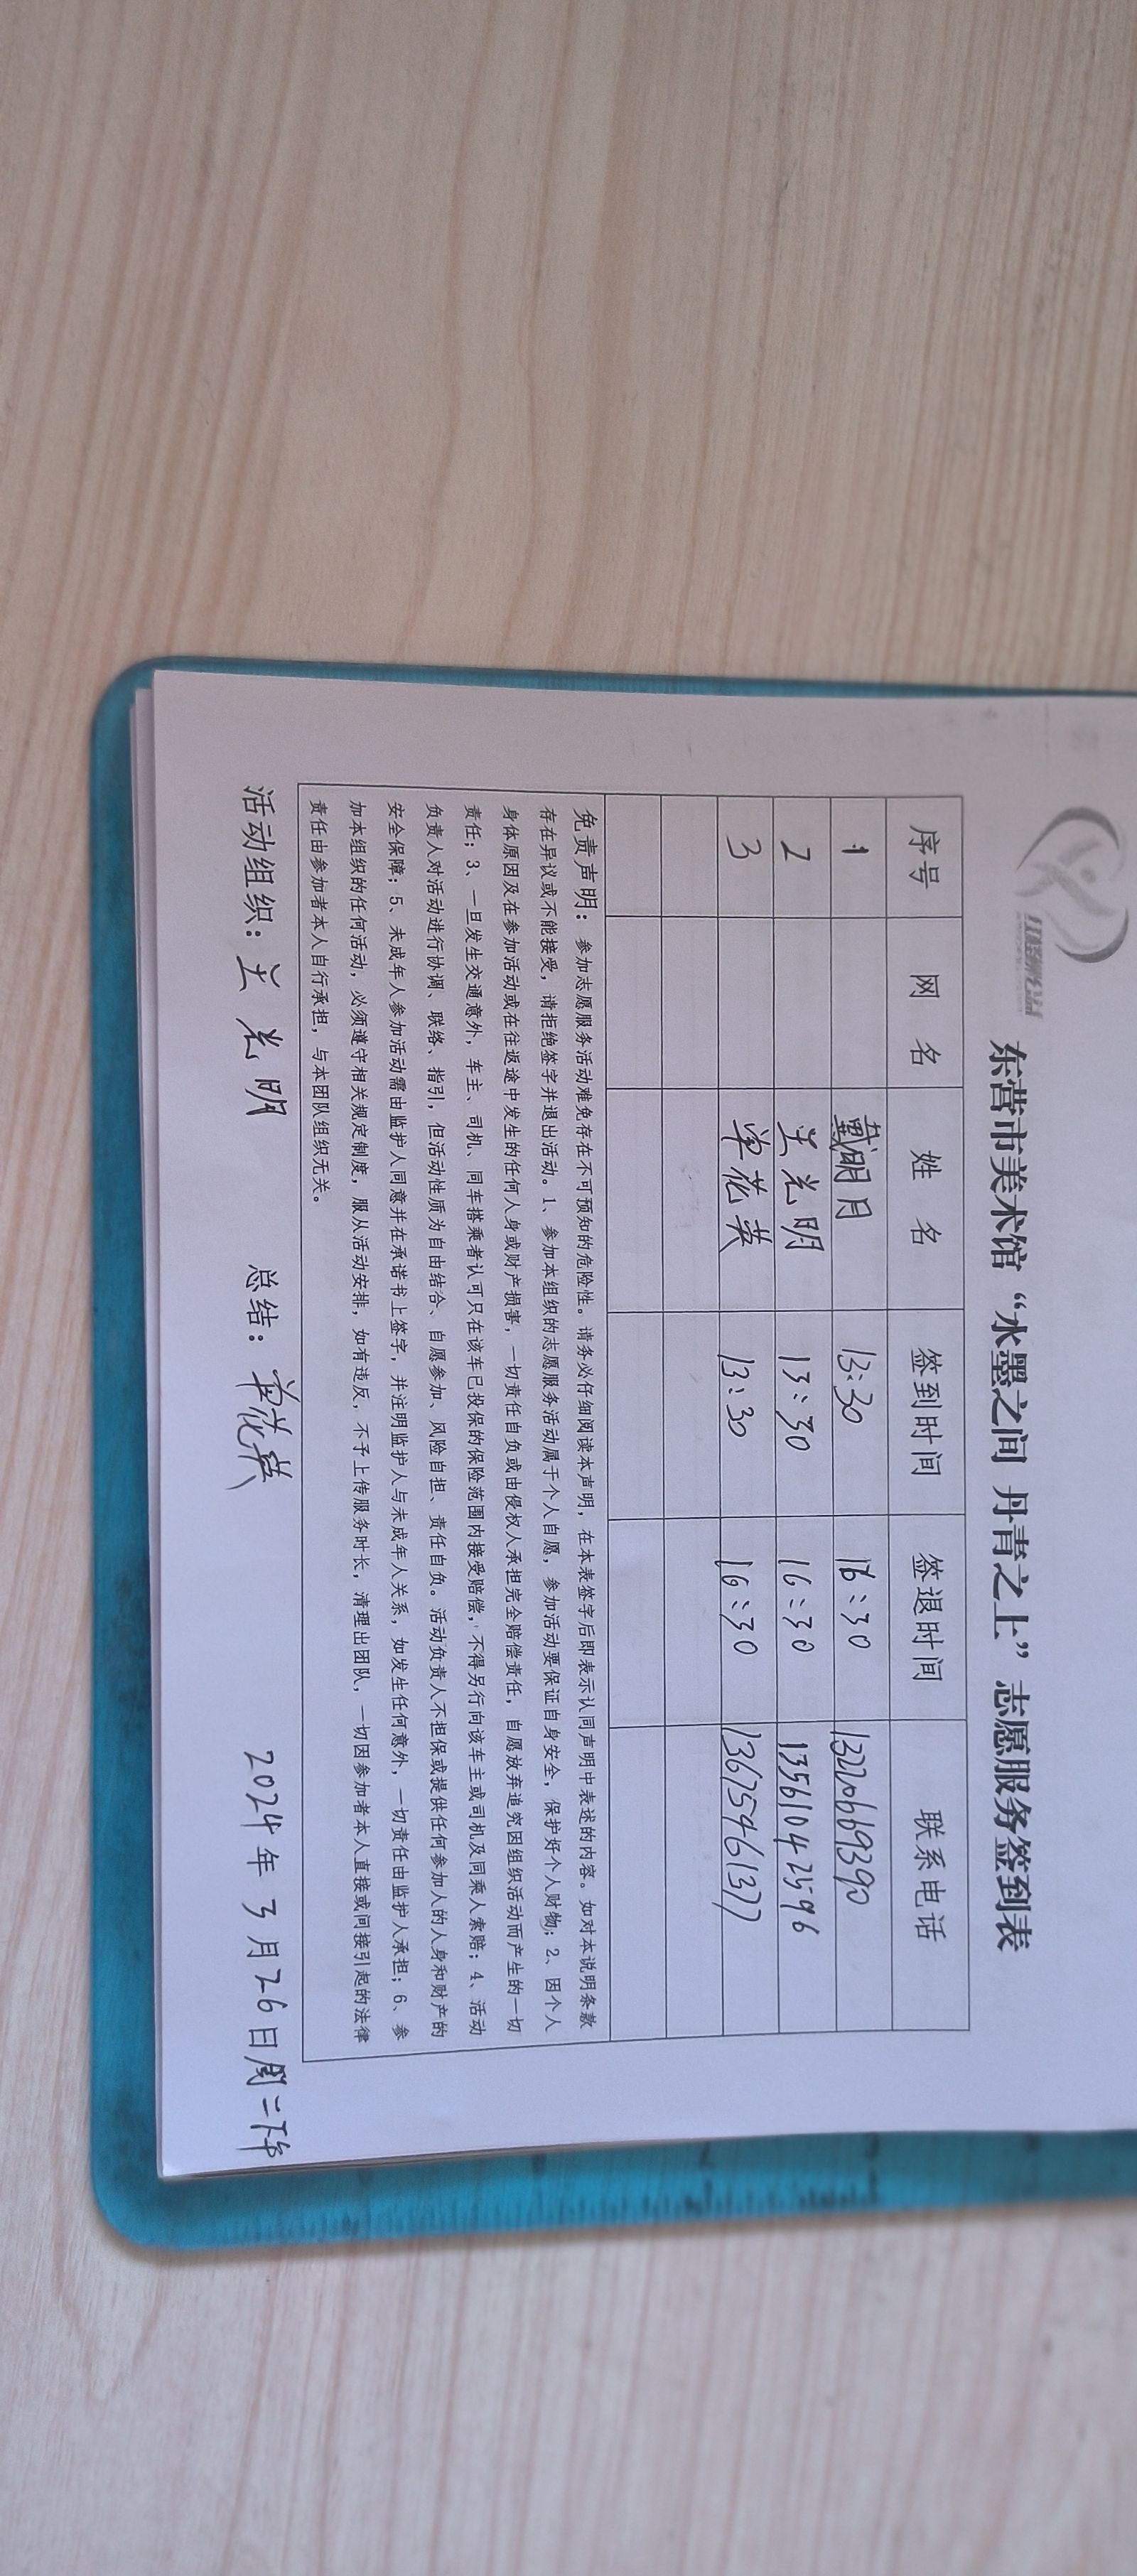 东营市美术馆“水墨之间 丹青之上”志愿服务签到表
序号 网 名 姓 名 签到时间 签退时间 联系电话
1 戴明月 13:30 16:30 13220669390
2 兰光明 13:30 16:30 13561042596
3 单花英 13:30 16:30 13675461377
免责声明：参加志愿服务活动难免存在不可预知的危险性。请务必仔细阅读本声明，在本表签字后即表示认同声明中表述的内容。如对本说明条款
存在异议或不能接受，请拒绝签字并退出活动。1、参加本组织的志愿服务活动属于个人自愿，参加活动要保证自身安全，保护好个人财物；2、因个人
身体原因及在参加活动或在往返途中发生的任何人身或财产损害，一切责任自负或由侵权人承担完全赔偿责任，自愿放弃追究因组织活动而产生的一切
责任；3、一旦发生交通意外，车主、司机、同车搭乘者认可只在该车已投保的保险范围内接受赔偿，不得另行向该车主或司机及同乘人索赔；4、活动
负责人对活动进行协调、联络、指引，但活动性质为自由结合、自愿参加、风险自担、责任自负。活动负责人不担保或提供任何参加人的人身和财产的
安全保障；5、未成年人参加活动需由监护人同意并在承诺书上签字，并注明监护人与未成年人关系，如发生任何意外，一切责任由监护人承担；6、参
加本组织的任何活动，必须遵守相关规定制度，服从活动安排，如有违反，不予上传服务时长，清理出团队，一切因参加者本人直接或间接引起的法律
责任由参加者本人自行承担，与本团队组织无关。
活动组织：兰光明 总结：单花英 2024年3月26日周二下午